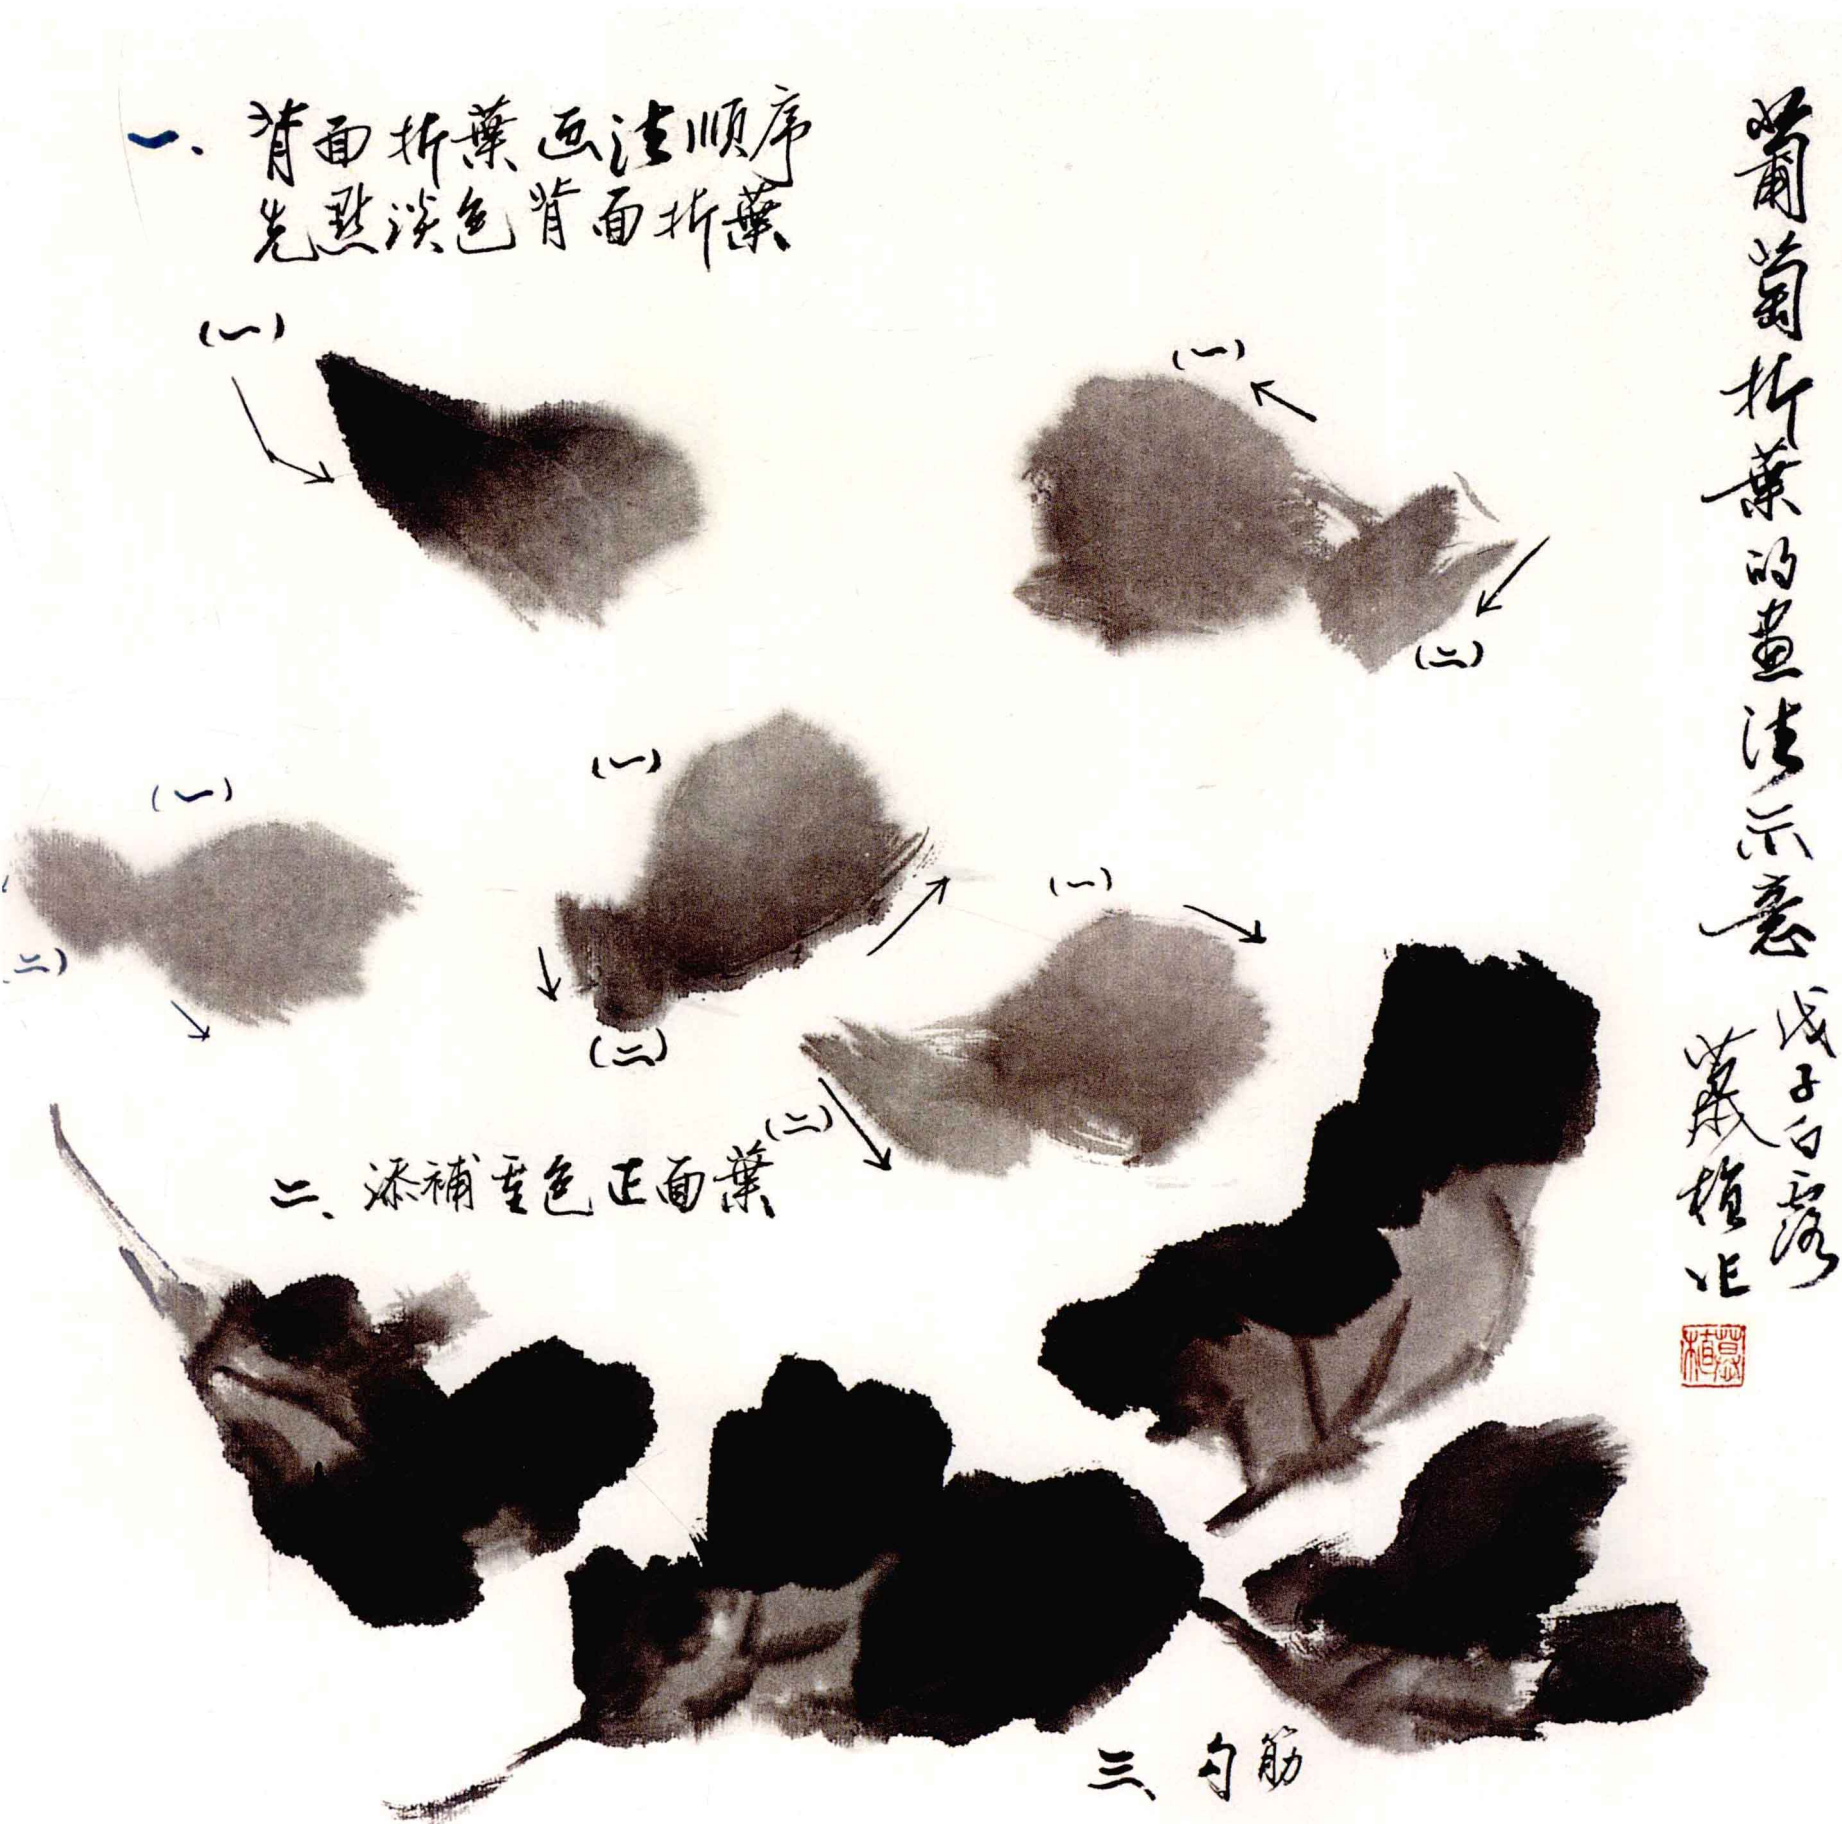 葡萄折葉的畫法示意
戊子白露
植作
一、背面折葉画法順序
先點淡色背面折葉
(一)
(一)
(二)
(一)
(二)
(一)
(二)
(一)
(二)
二、添補重色正面葉
三、勾筋